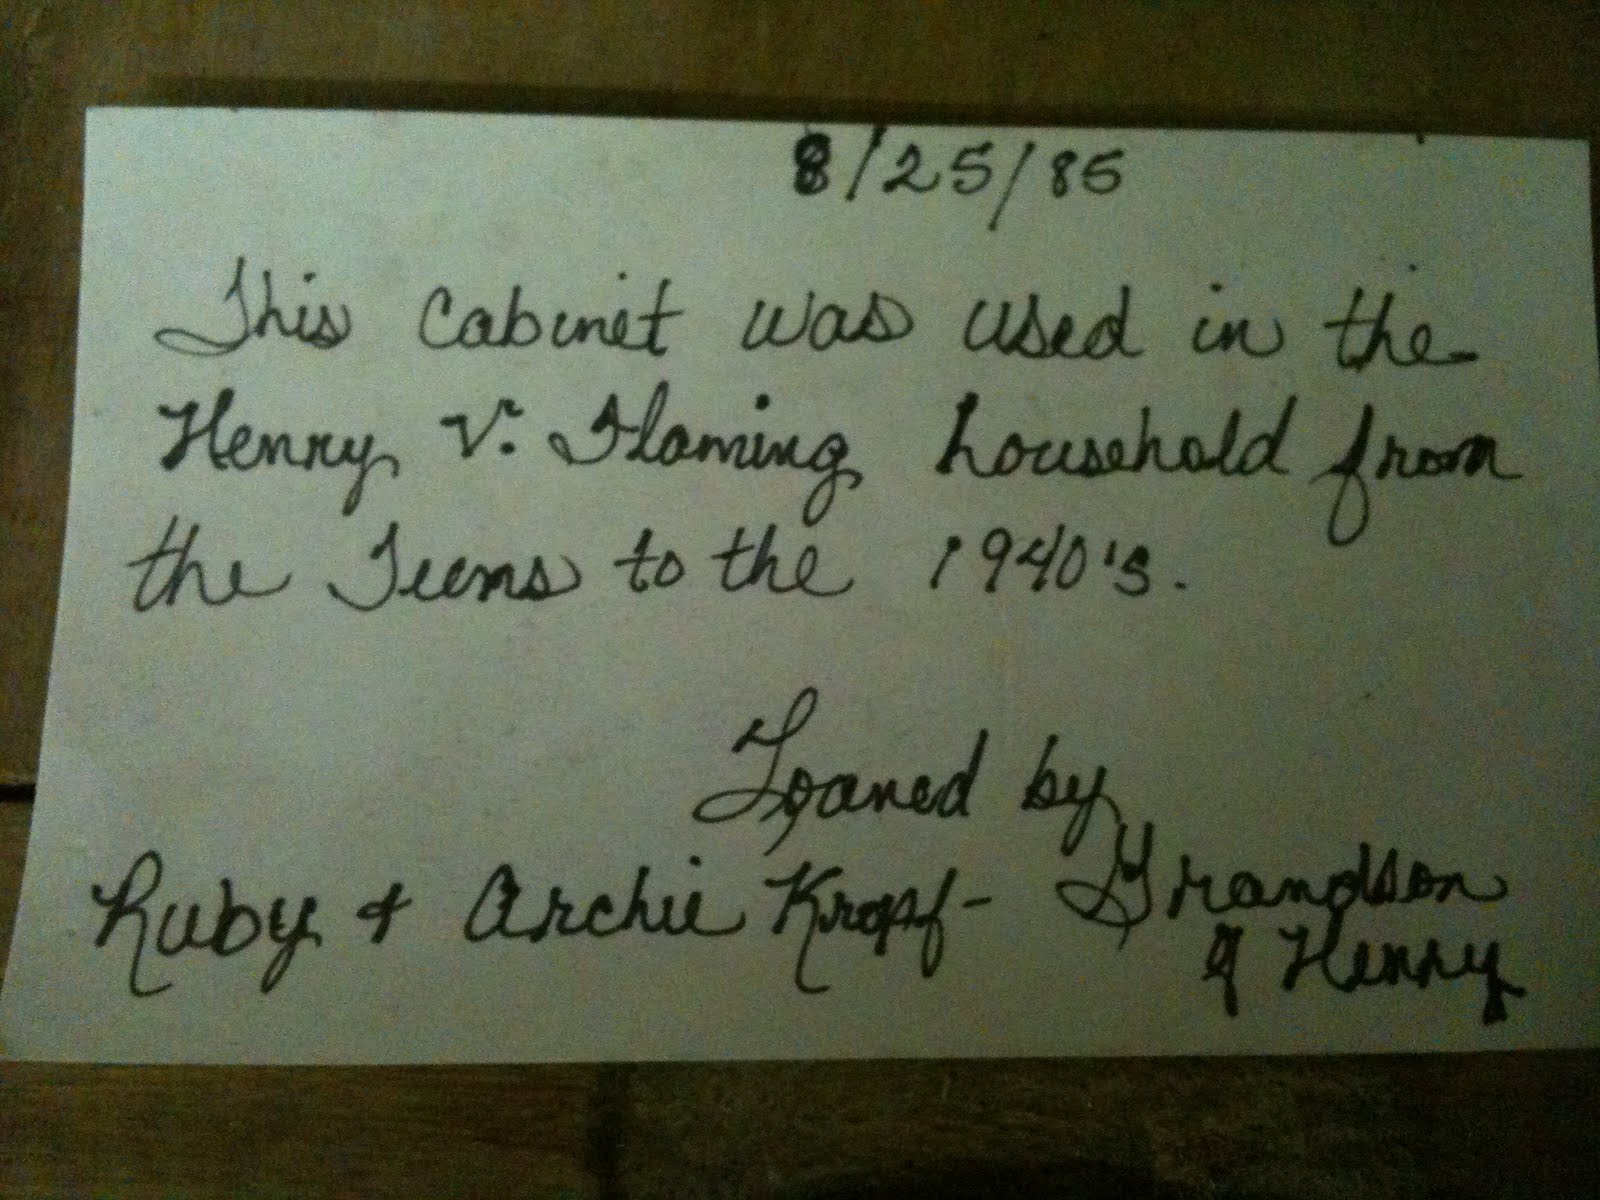 8/25/85
This cabinet was used in the
Henry V. Flaming household from
the Teens to the 1940's.
Loaned by
Ruby & Archie Kropf - Grandson
of Henry